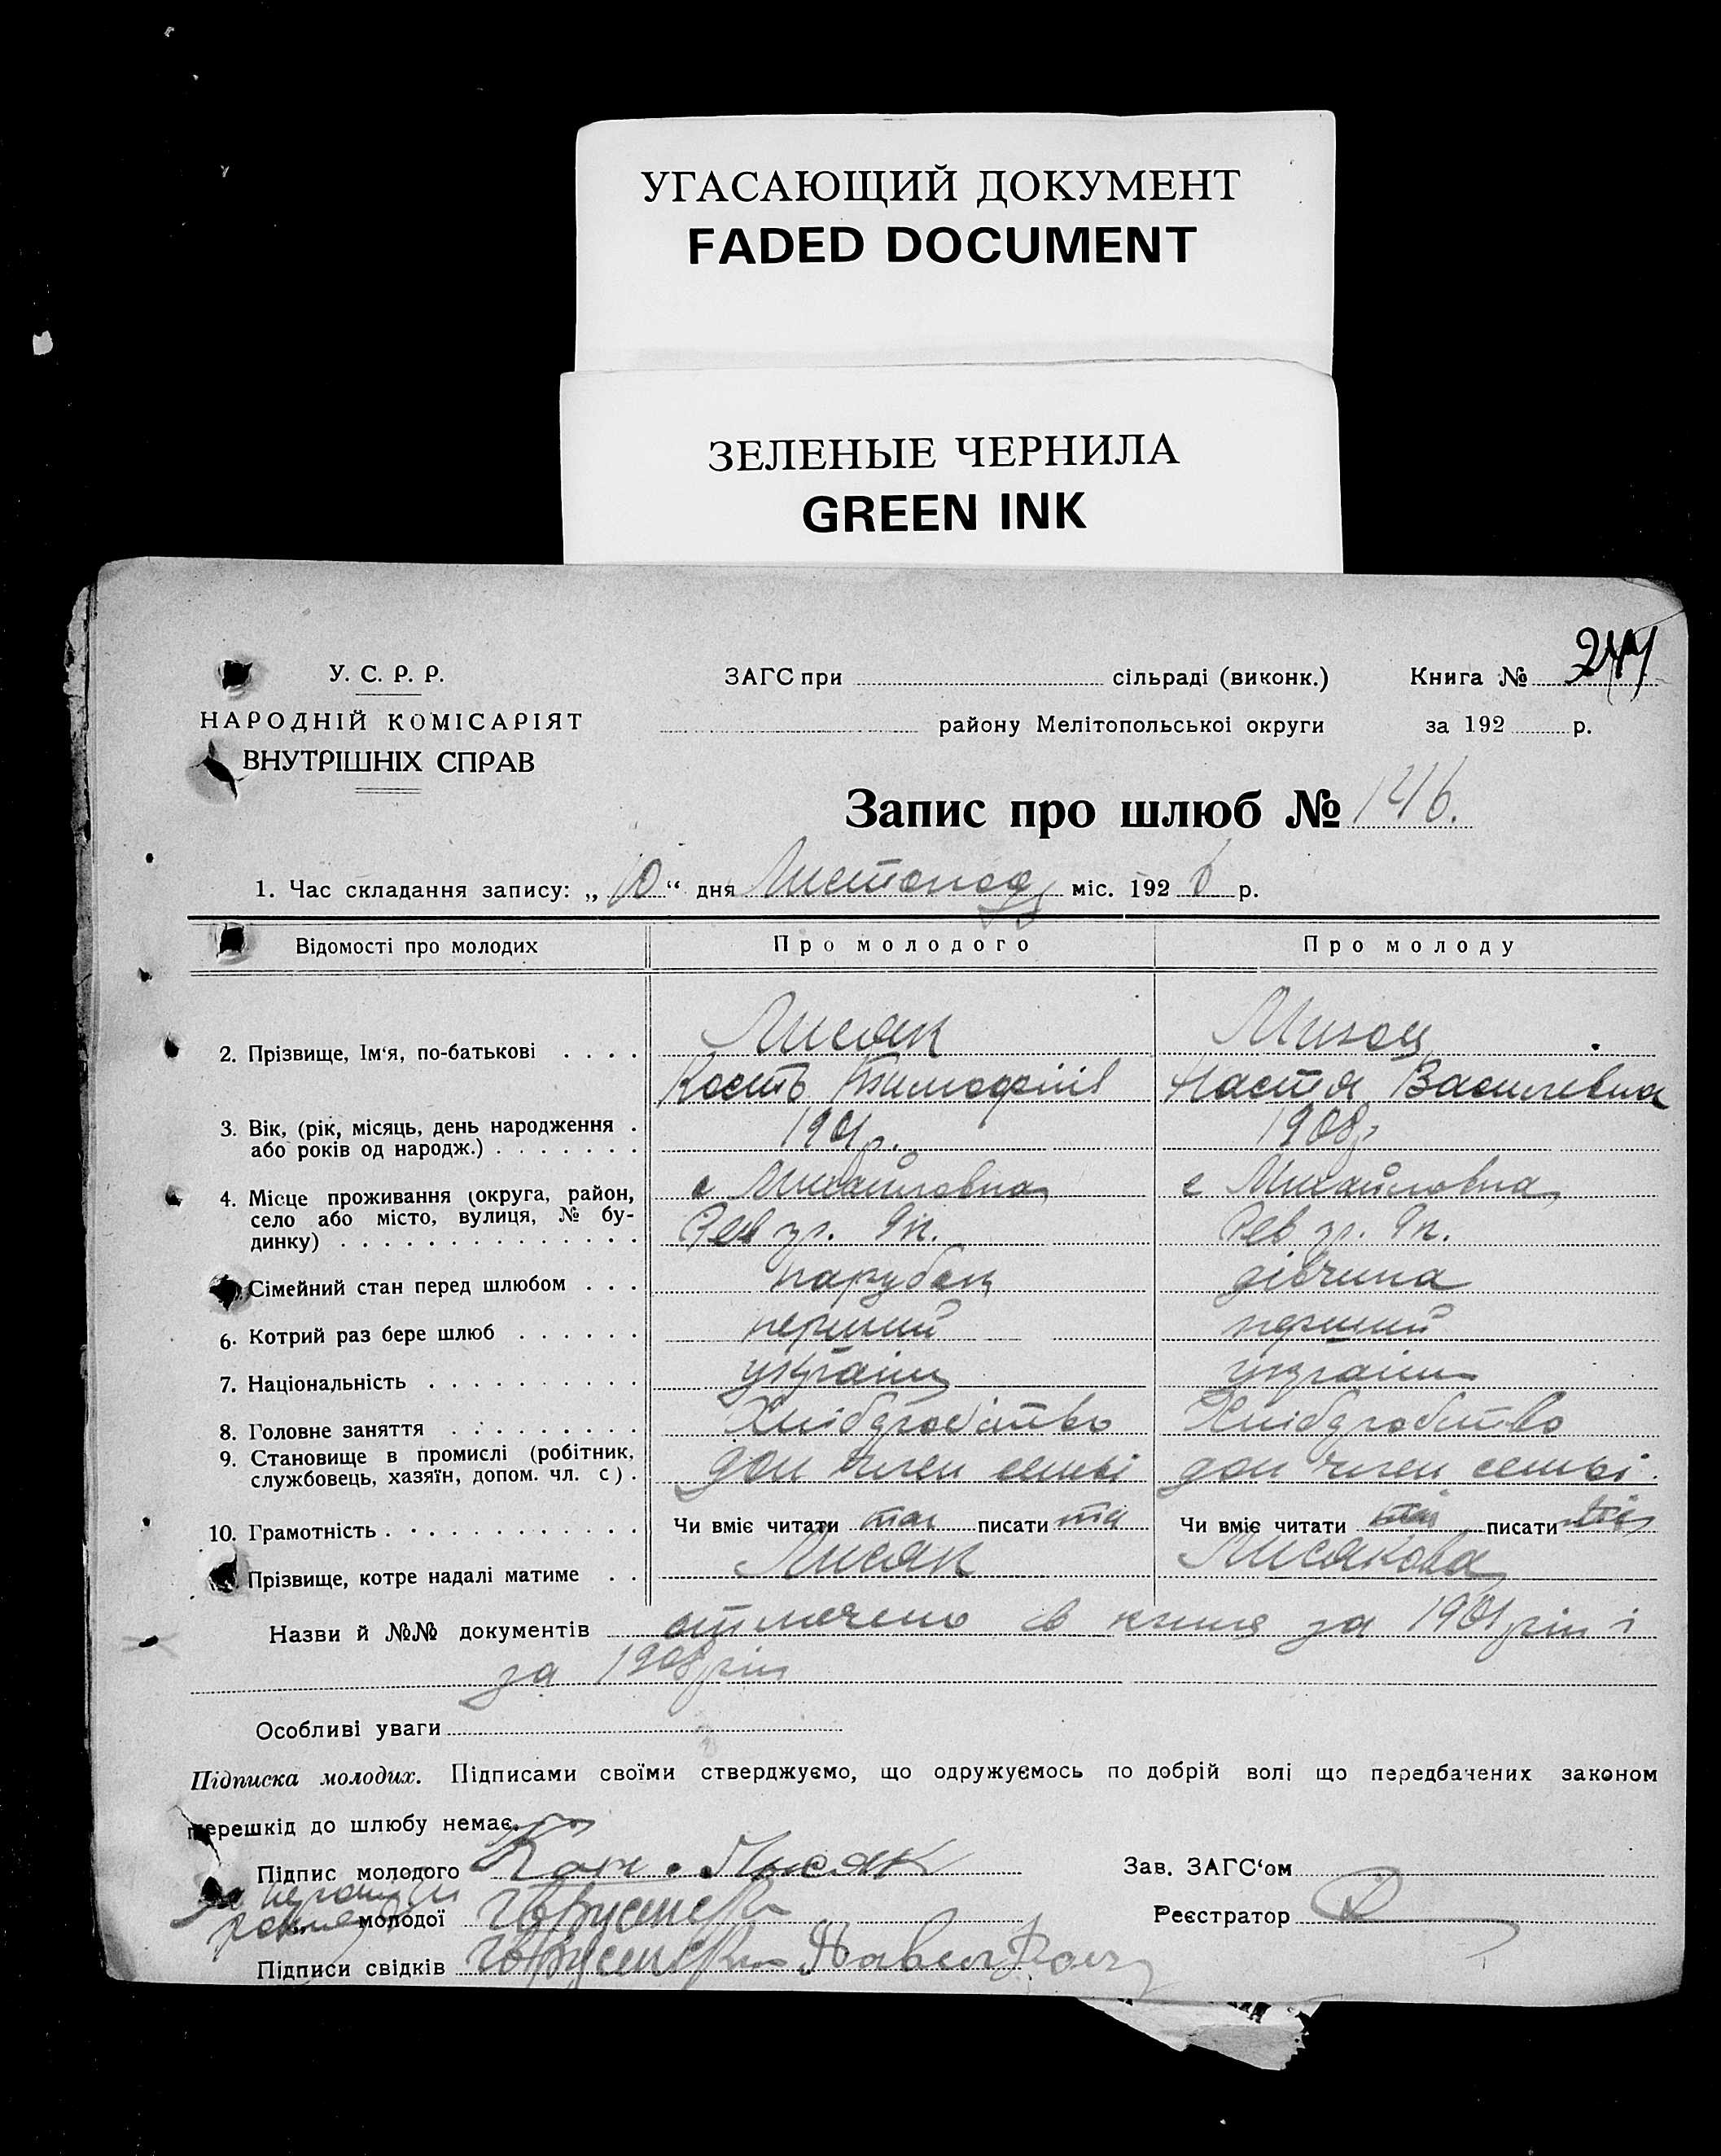 УГАСАЮЩИЙ ДОКУМЕНТ
FADED DOCUMENT
ЗЕЛЕНЫЕ ЧЕРНИЛА
GREEN INK
У. С. Р. Р.
НАРОДНІЙ КОМІСАРІЯТ
ВНУТРІШНІХ СПРАВ
ЗАГС при сільраді (виконк.) Книга №
району Мелітопольської округи за 192 р.
Запис про шлюб № 146.
1. Час складання запису: „10“ дня Листопад міс. 192 р.
Відомості про молодих Про молодого Про молоду
2. Прізвище, Ім‘я, по-батькові Лисяк
Кость Тимофіїв Настя Василевна
3. Вік, (рік, місяць, день народження або років од народж.) 1901р. 1908р
4. Місце проживання (округа, район, село або місто, вулиця, № будинку) с Михайловка с Михайловка
Рев 9п. Рев 9п.
Сімейний стан перед шлюбом парубок дівчина
6. Котрий раз бере шлюб перший перший
7. Національність україн україн
8. Головне заняття Хлібдробство Хлібдробство
9. Становище в промислі (робітник, службовець, хазяїн, допом. чл. с). доп член семьі доп член семьі.
10. Грамотність Чи вміє читати так писати та Чи вміє читати писати
Прізвище, котре надалі матиме Лисяк Лисякова
Назви й №№ документів отмечено в книгя за 1901рік і
за 1908рік
Особливі уваги
Підписка молодих. Підписами своїми стверджуємо, що одружуємось по добрій волі що передбачених законом
перешкід до шлюбу немає.
Підпис молодого Лысяк Зав. ЗАГС‘ом
молодої Реєстратор
Підписи свідків